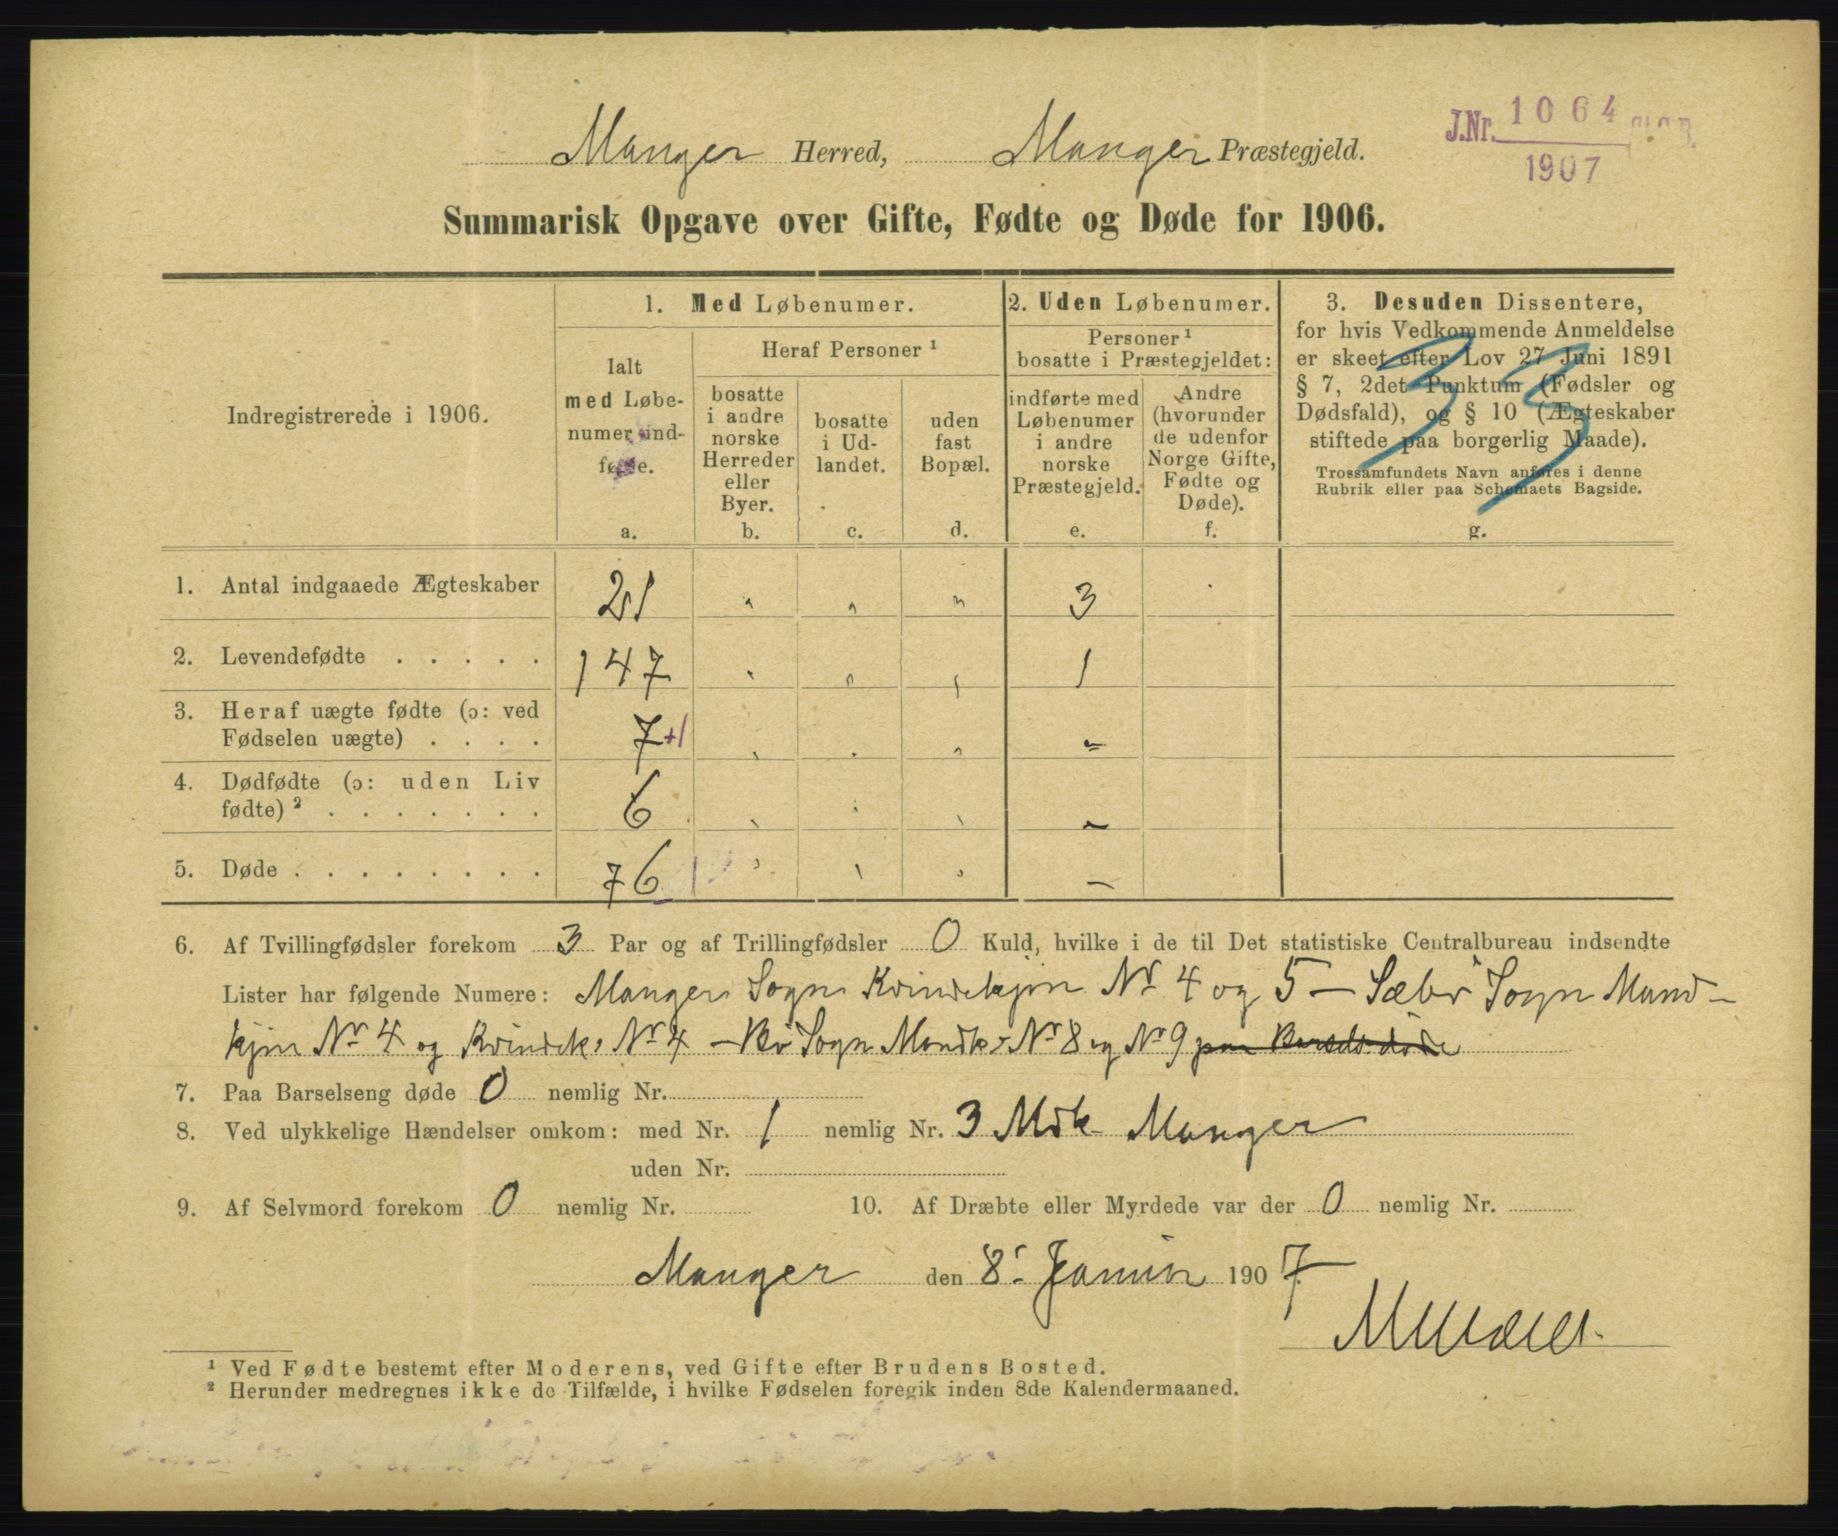 Manger Herred, Manger Præstegjeld.
J.Nr. 1064
1907
Summarisk Opgave over Gifte, Fødte og Døde for 1906.
Indregistrerede i 1906.
1. Med Løbenumer.
Ialt med Løbenumer indførte.
a.
Heraf Personer ¹
bosatte i andre norske Herreder eller Byer.
b.
bosatte i Udlandet.
c.
uden fast Bopæl.
d.
2. Uden Løbenumer.
Personer ¹ bosatte i Præstegjeldet:
indførte med Løbenumer i andre norske Præstegjeld.
e.
Andre (hvorunder de udenfor Norge Gifte, Fødte og Døde).
f.
3. Desuden Dissentere, for hvis Vedkommende Anmeldelse er skeet efter Lov 27 Juni 1891 § 7, 2det Punktum (Fødsler og Dødsfald), og § 10 (Ægteskaber stiftede paa borgerlig Maade).
Trossamfundets Navn anføres i denne Rubrik eller paa Schemaets Bagside.
g.
33
1. Antal indgaaede Ægteskaber 21 " " " 3
2. Levendefødte . . . . . 147 " " " 1
3. Heraf uægte fødte (ɔ: ved Fødselen uægte) . . . . 7+1 " " " -
4. Dødfødte (ɔ: uden Liv fødte) ² . . . . . . . 6 " " " -
5. Døde . . . . . . . . 76 " " " -
6. Af Tvillingfødsler forekom 3 Par og af Trillingfødsler 0 Kuld, hvilke i de til Det statistiske Centralbureau indsendte
Lister har følgende Numere: Manger Sogn Kvindekjøn Nr 4 og 5 – Sæbø Sogn Mand-
kjøn Nr 4 og Kvindek. Nr 4 – Bø Sogn Mandk. Nr 8 og Nr 9
7. Paa Barselseng døde 0 nemlig Nr.
8. Ved ulykkelige Hændelser omkom: med Nr. 1 nemlig Nr. 3 Mdk Manger
uden Nr.
9. Af Selvmord forekom 0 nemlig Nr. 10. Af Dræbte eller Myrdede var der 0 nemlig Nr.
Manger den 8. Januar 1907.
¹ Ved Fødte bestemt efter Moderens, ved Gifte efter Brudens Bosted.
² Herunder medregnes ikke de Tilfælde, i hvilke Fødselen foregik inden 8de Kalendermaaned.